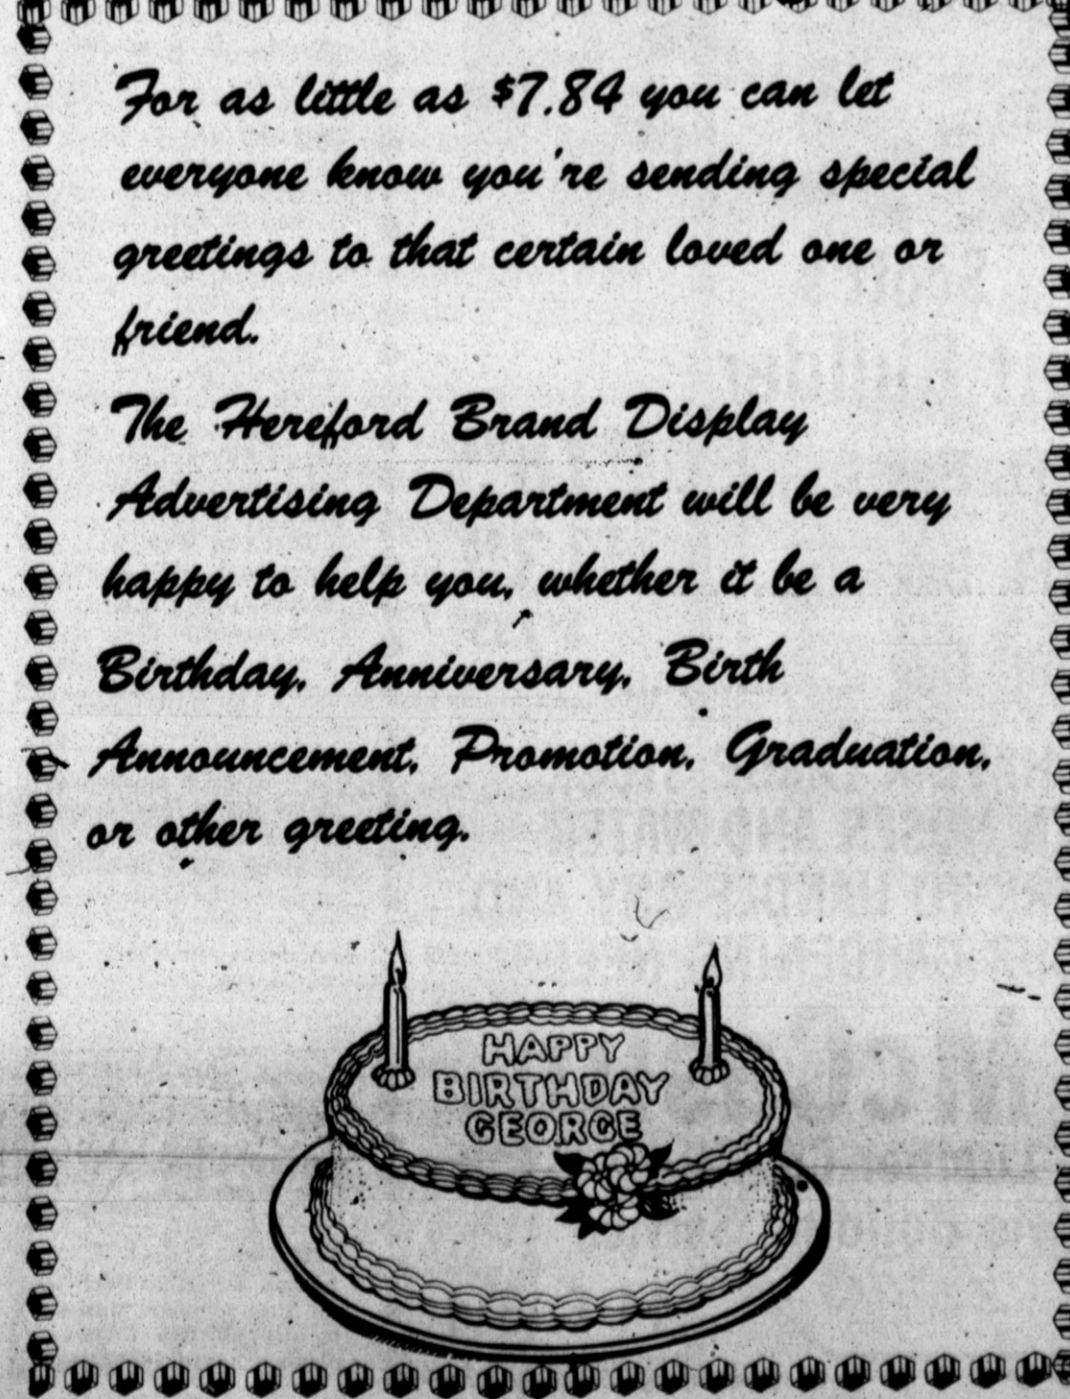 For as little as $7.84 you can let
everyone know you're sending special
greetings to that certain loved one or
friend.
The Hereford Brand Display
Advertising Department will be very
happy to help you, whether it be a
Birthday, Anniversary, Birth
Announcement, Promotion, Graduation,
or other greeting.
HAPPY
BIRTHDAY
GEORGE